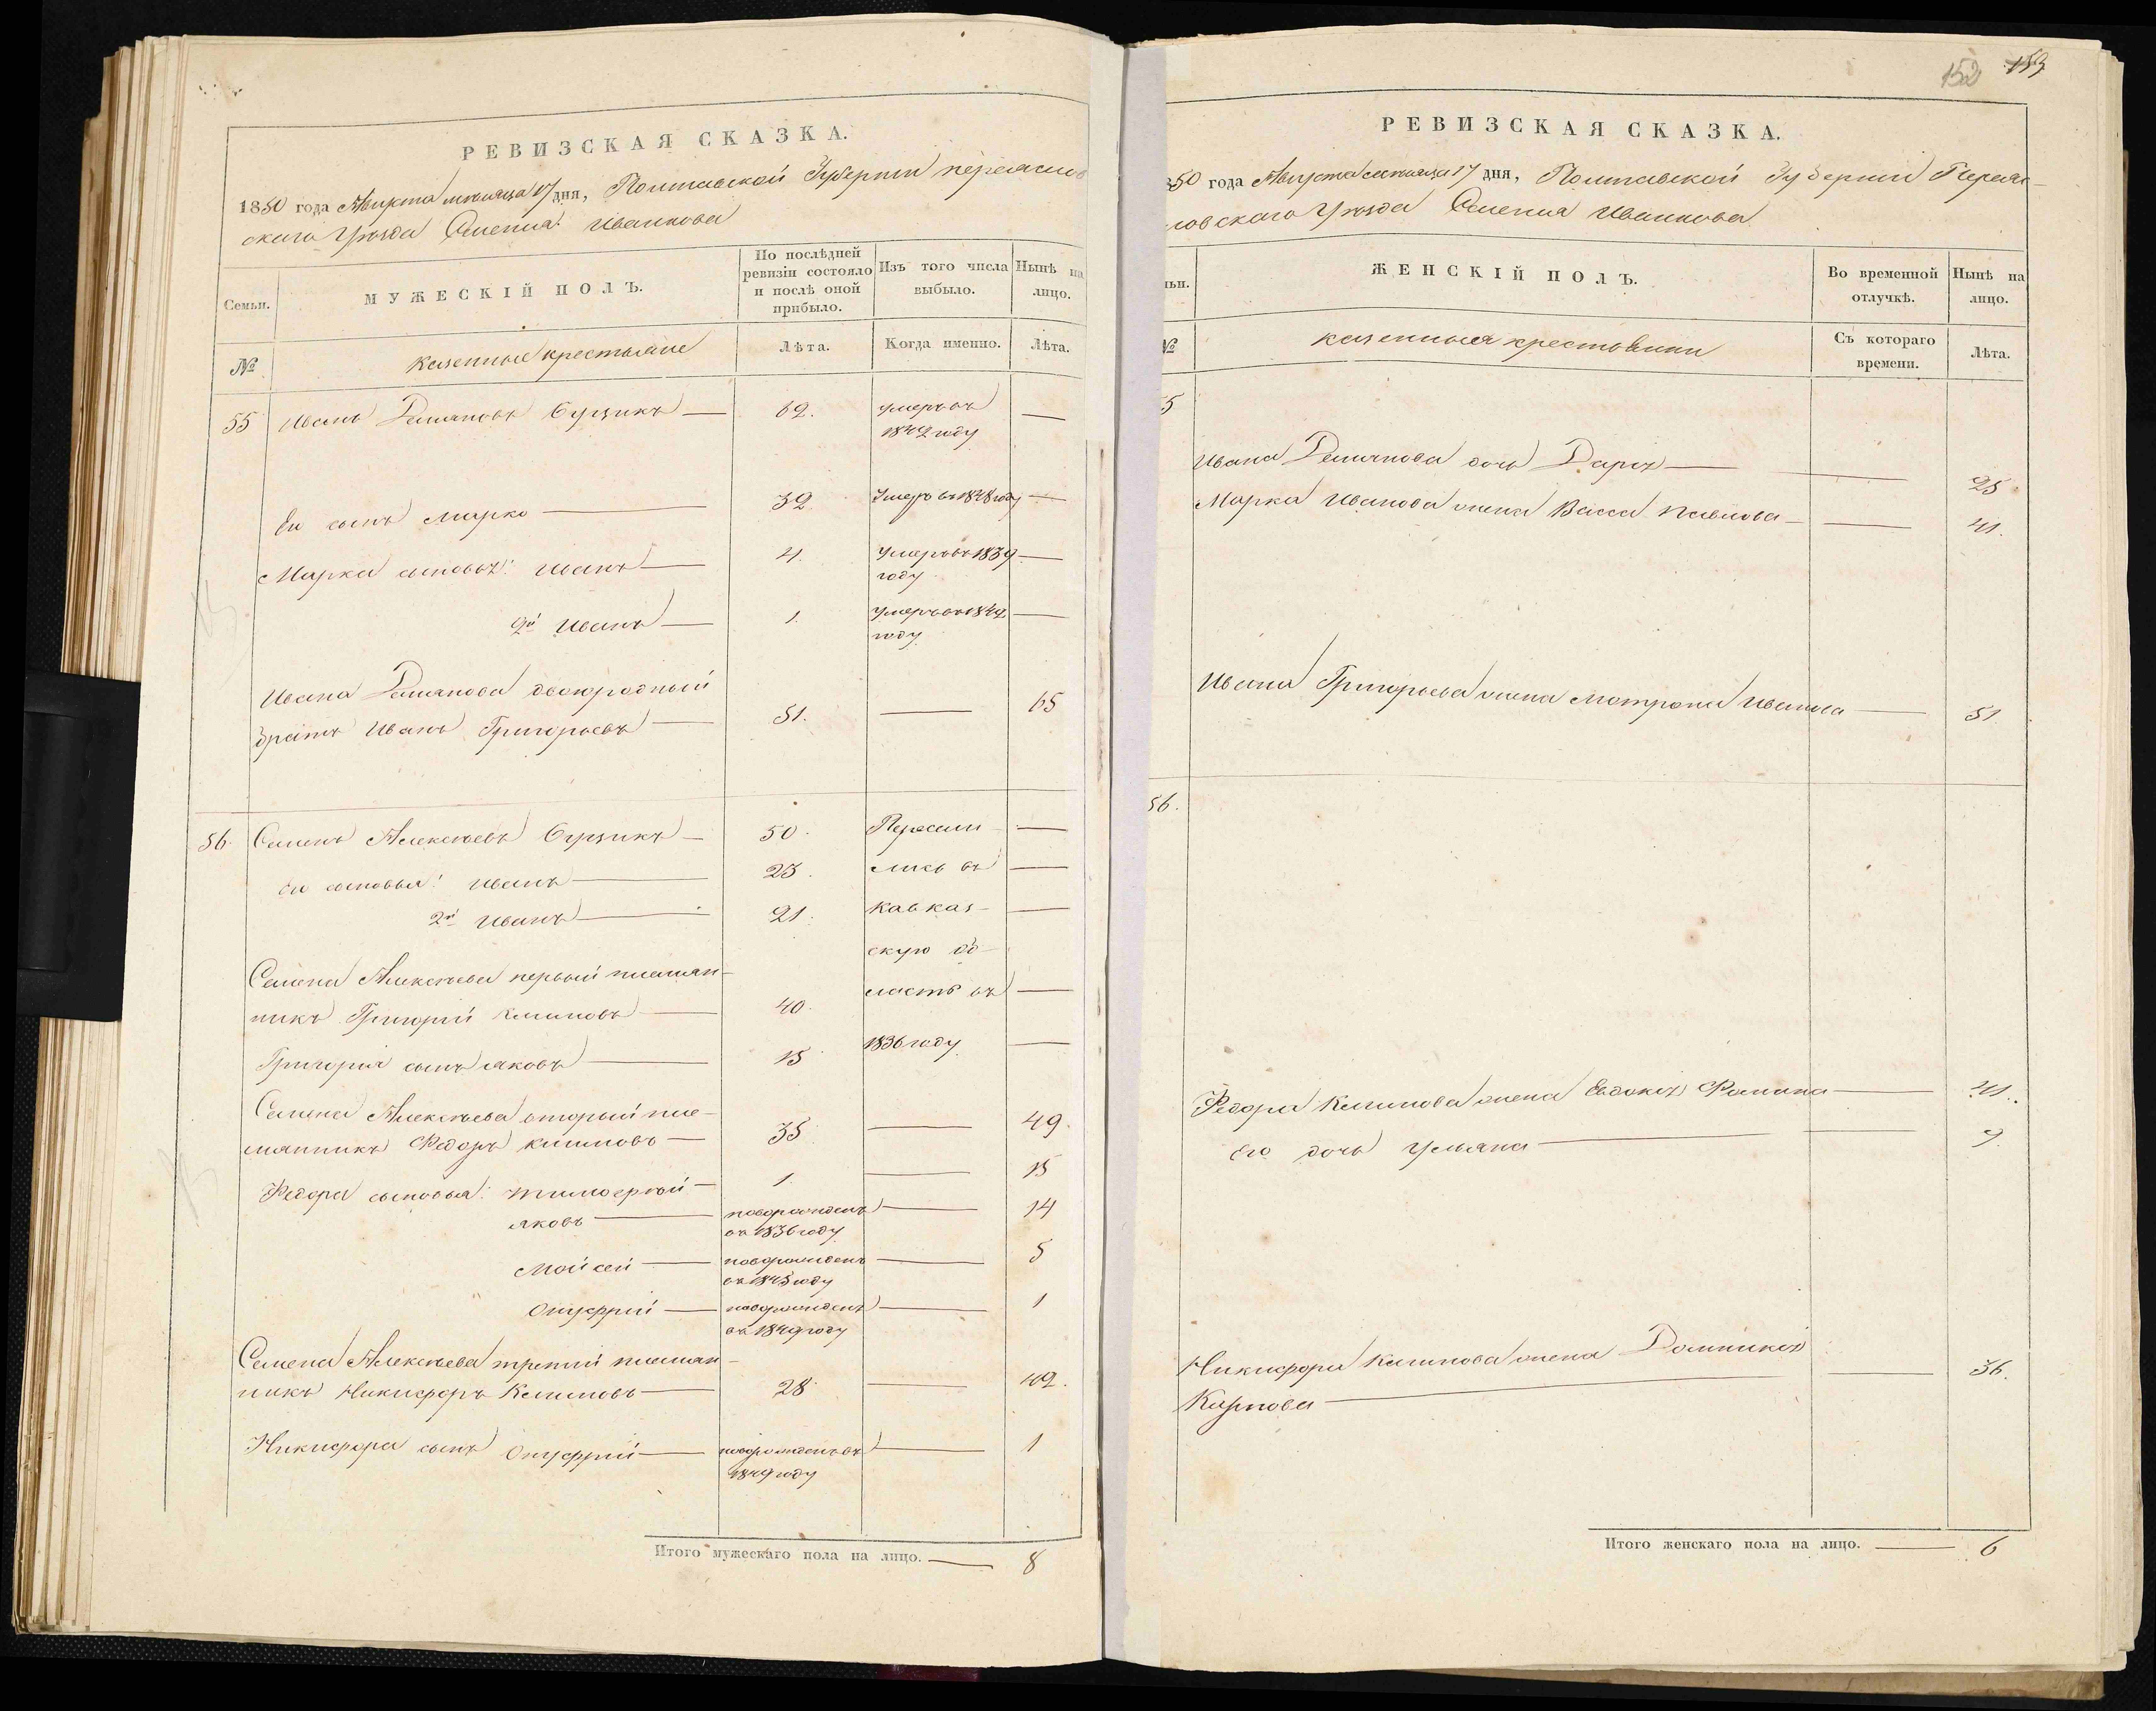 РЕВИЗСКАЯ СКАЗКА.
1850 года Августа месяца 17 дня, Полтавской Губернии переяслов
скаго Уѣзда Селенія Иванкова
Семьи.
МУЖЕСКІЙ ПОЛЪ.
По послѣдней ревизіи состояло и послѣ оной прибыло.
Изъ того числа выбыло.
Нынѣ на лицо.
№
казенные крестьяне
Лѣта.
Когда именно.
Лѣта.
55 Иванъ Демяновъ Бурзикъ — 62. умеръ въ —
1842 году
Его сынъ Марко — 32 Умеръ въ 1848 году —
Марка сыновья: Иванъ — 4. Умеръ въ 1839 —
году
2й Иванъ — 1. умеръ въ 1842 —
году
Ивана Демянова двоюродный
братъ Иванъ Григорьевъ — 51. — 65
56. Семенъ Алексѣевъ Бурзикъ — 50. Пересели —
Его сыновья: Иванъ — 25. лись въ —
2й Иванъ — 21. Кавказ- —
скую об-
Семена Алексѣева первый племян-
никъ Григорій Климовъ — 40. ласть въ —
Григорія сынъ Яковъ — 15 1836 году —
Семена Алексѣева вторый пле-
мянникъ Федоръ Климовъ — 35 — 49.
Федора сыновья: Тимофей — 1. — 15
Яковъ — новорожденъ — 14
въ 1836 году
Мойсей — новорожденъ — 5
въ 1845 году
Онуфрій — новорожденъ — 1
въ 1849 году
Семена Алексѣева третій племян-
никъ Никифоръ Климовъ — 28. — 42.
Никифора сынъ Онуфрій — новорожденъ въ — 1
1849 году
Итого мужескаго пола на лицо. — 8
152 153
РЕВИЗСКАЯ СКАЗКА.
850 года Августа месяца 17 дня, Полтавской Губерніи Переяс-
ловскаго Уѣзда Селенія Иванкова
ьи.
ЖЕНСКІЙ ПОЛЪ.
Во временной отлучкѣ.
Нынѣ на лицо.
№
казенныя крестьянки
Съ котораго времени.
Лѣта.
5
Ивана Демянова дочь Дарія — — 25
Марка Иванова жена Васса Павлова — — 41.
Ивана Григорьева жена Матрона Иванова — 51
56.
Федора Климова жена Евдокія Фомина — 41.
Его дочь Ульяна — — 9.
Никифора Климова жена Домникія
Карпова — — 36.
Итого женскаго пола на лицо. — 6